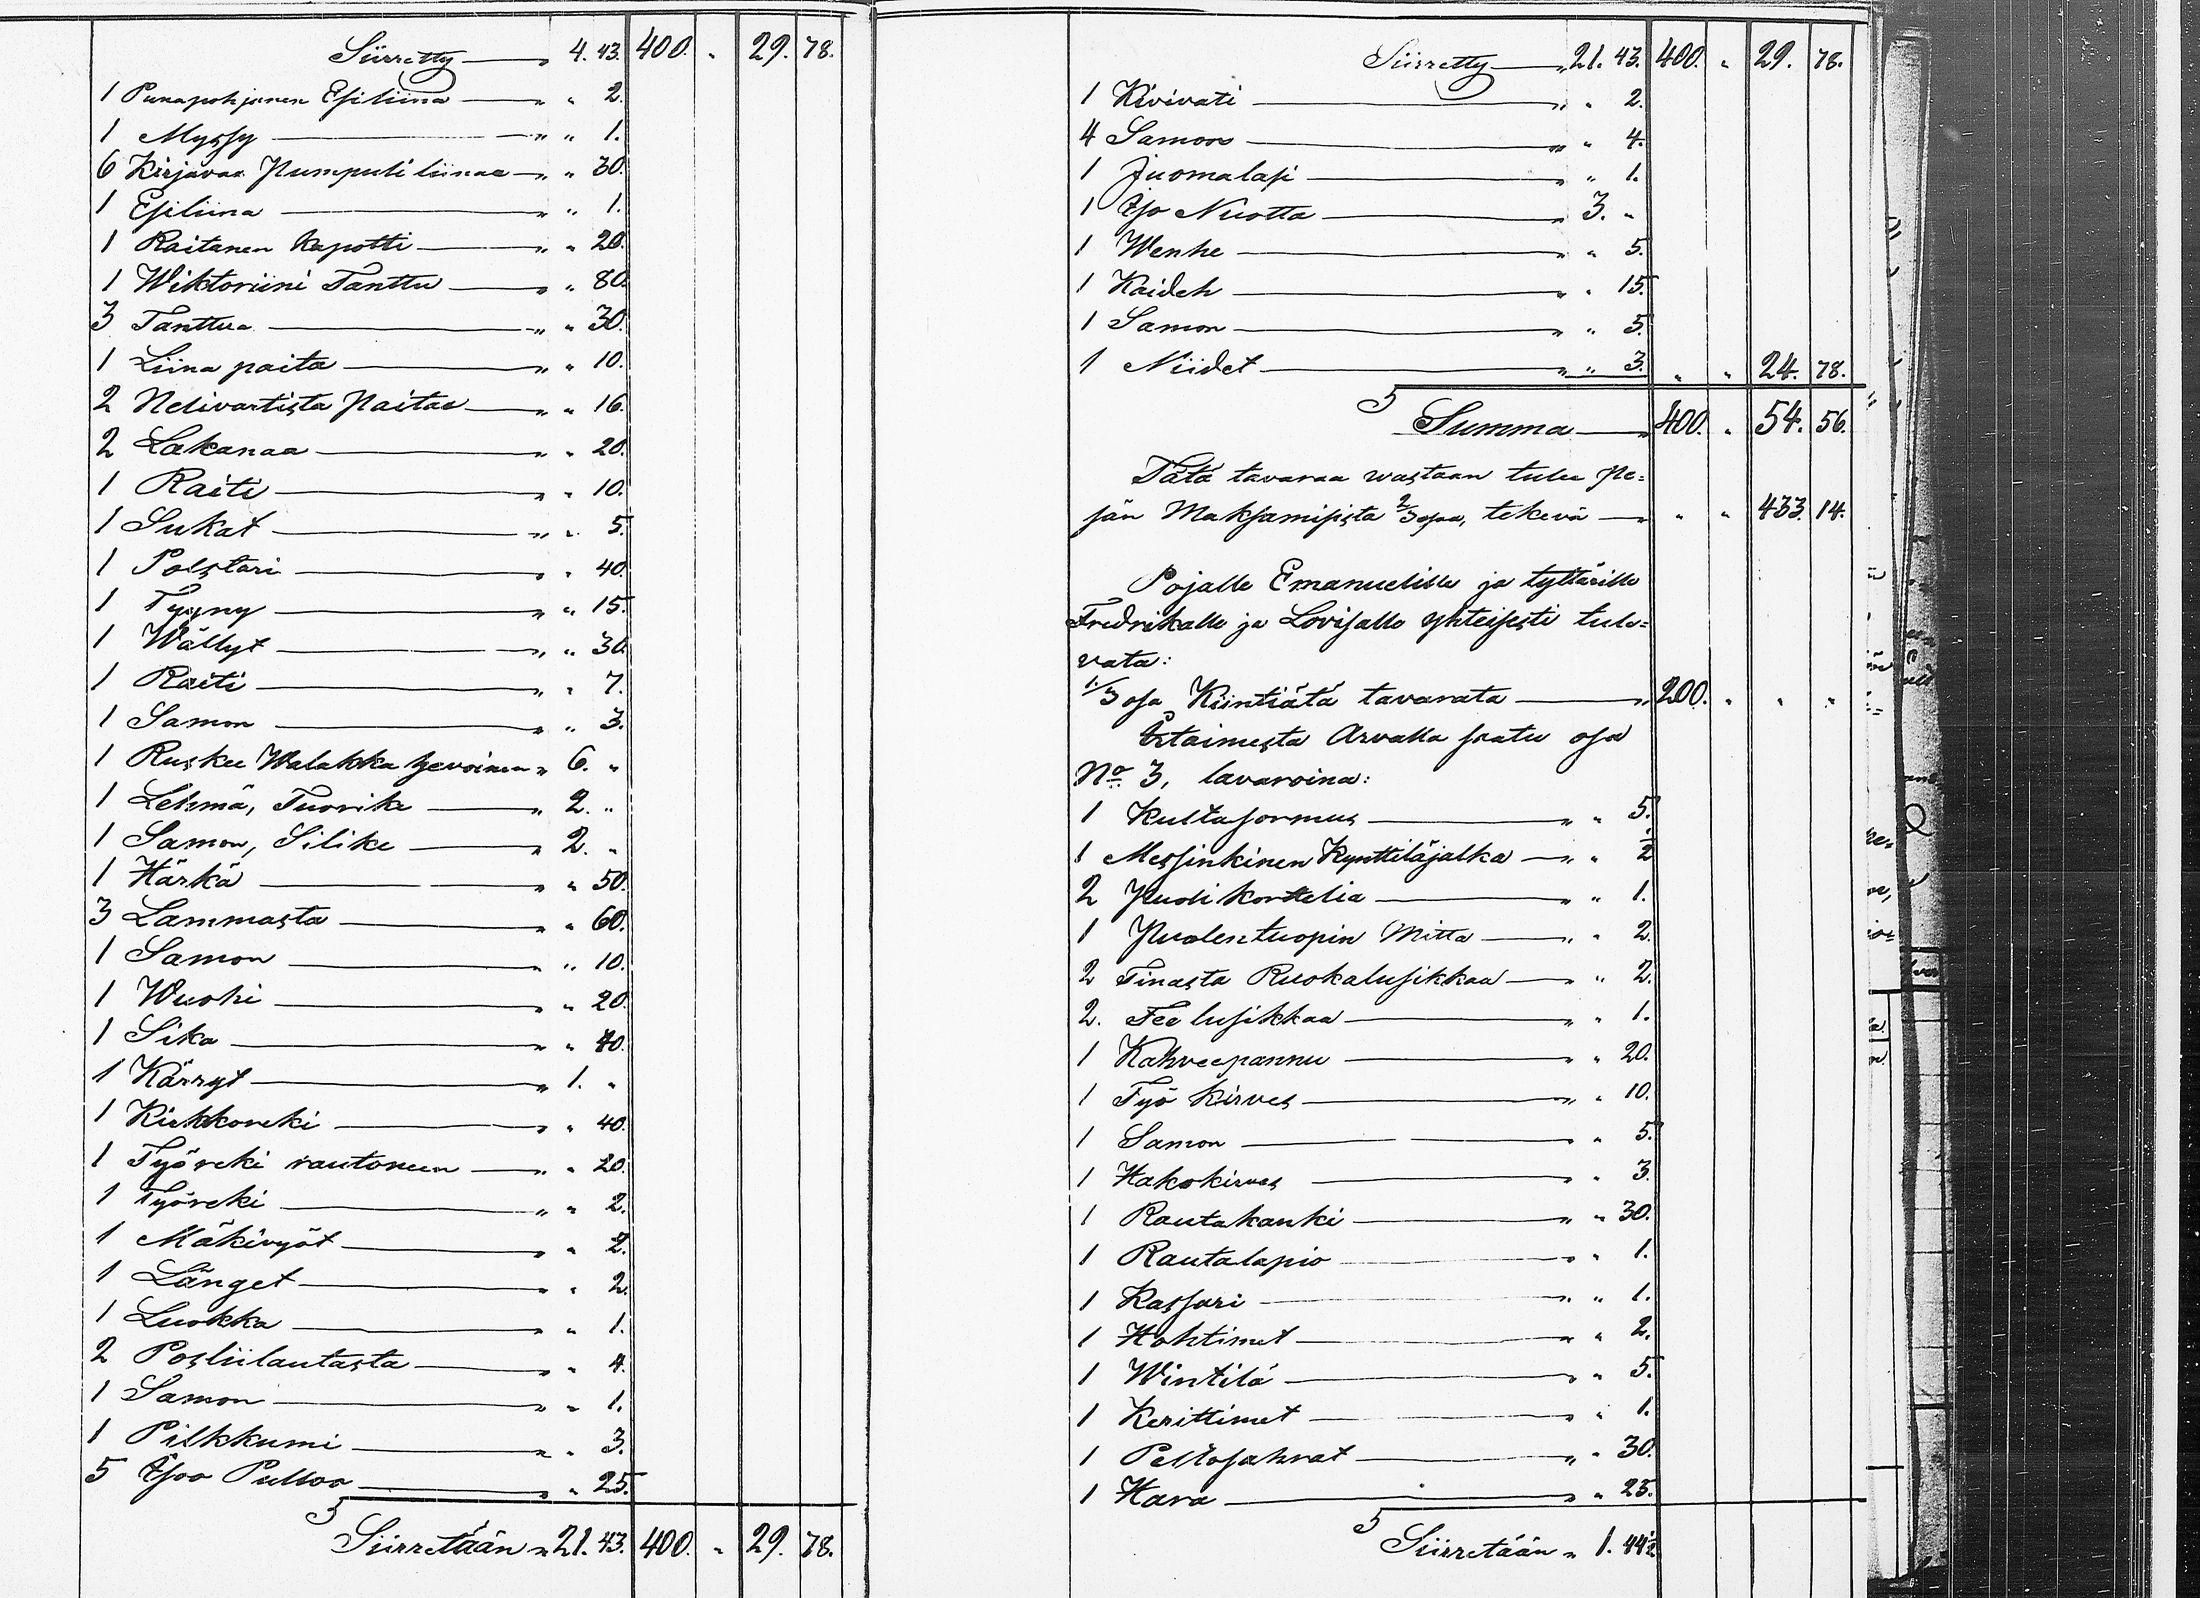 Siirretty — „ 4. 43. 400. „ 29. 78.
1 Punapohjanen Esiliina — „ „ 2.
1 Myssy — „ „ 1.
6 Kirjavaa Pumpuli liinaa — „ „ 30.
1 Esiliina — „ „ 1.
1 Raitanen Kapotti — „ „ 20.
1 Wiktoriini Tanttu — „ „ 80.
3 Tanttua — „ „ 30.
1 Liina paita — „ „ 10.
2 Nelivartista Paitaa — „ „ 16.
2 Lakanaa — „ „ 20.
1 Raiti — „ „ 10.
1 Sukat — „ „ 5.
1 Polstari — „ „ 40.
1 Tyyny — „ „ 15.
1 Wällyt — „ „ 30.
1 Raiti — „ „ 7.
1 Samon — „ „ 3.
1 Ruskee Walakka hevoinen „ 6. „
1 Lehmä, Tuorike — „ 2. „
1 Samon, Silike — „ 2. „
1 Härkä — „ „ 50.
3 Lammasta — „ „ 60.
1 Samon — „ „ 10.
1 Wuohi — „ „ 20.
1 Sika — „ „ 40.
1 Kärryt — „ 1. „
1 Kirkkoreki — „ „ 40.
1 Työreki rautoneen — „ „ 20.
1 Työreki — „ „ 2.
1 Mäkivyöt — „ „ 2.
1 Länget — „ „ 2.
1 Luokka — „ „ 1.
2 Posliilautasta — „ „ 4.
1 Samon — „ „ 1.
1 Pilkkumi — „ „ 3.
5 Isoo Pulloo — „ „ 25.
Siirretään „ 21. 43. 400. „ 29. 78.
Siirretty — „ 21. 43. 400. „ 29. 78.
1 Kivivati — „ „ 2.
4 Samon — „ „ 4.
1 Juomalasi — „ „ 1.
1 Iso Nuotta — „ 3. „
1 Wenhe — „ „ 5.
1 Kaideh — „ „ 15.
1 Samon — „ „ 5.
1 Niidet — „ „ 3. „ „ 24. 78.
Summa — 400. „ 54. 56.
Tätä tavaraa wastaan tulee Pe=
sän Maksamisista 2/3 osaa, tekevä — „ „ 433. 14.
Pojalle Emanuelille ja tyttärille
Fredrikalle ja Lovisalle yhteisesti tule=
vata:
1/3 osa Kiintiätä tavarata — „ 200. „ „ „
Irtaimesta Arvalla saatu osa
No 3, tavaroina:
1 Kultasormus — „ „ 5.
1 Messinkinen Kynttiläjalka — „ „ ½
2 Puolikorttelia — „ „ 1.
1 Puolentuopin Mitta — „ „ 2.
2 Tinasta Ruokalusikkaa — „ „ 2.
2. Tee lusikkaa — „ „ 1.
1 Kahveepannu — „ „ 20.
1 Työ kirves — „ „ 10.
1 Samon — „ „ 5.
1 Hakokirves — „ „ 3.
1 Rautakanki — „ „ 30.
1 Rautalapio — „ „ 1.
1 Kassari — „ „ 1.
1 Hohtimet — „ „ 2.
1 Wintilä — „ „ 5.
1 Kerittimet — „ „ 1.
1 Peltosahrat — „ „ 30.
1 Hara — „ „ 25.
Siirretään „ 1. 44½